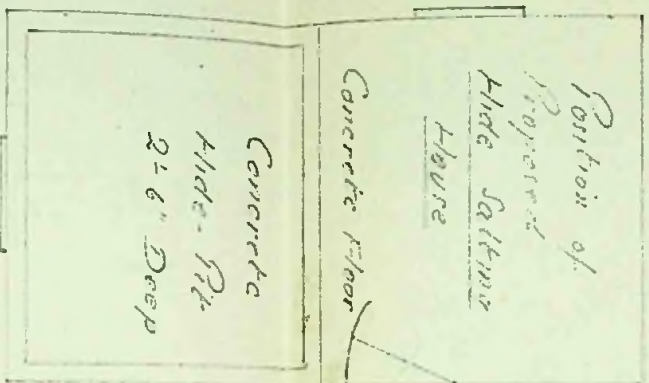 Position of
Proposed
Hide Salting
House
Concrete Floor
Concrete
Hide-Pit
2'-6" Deep